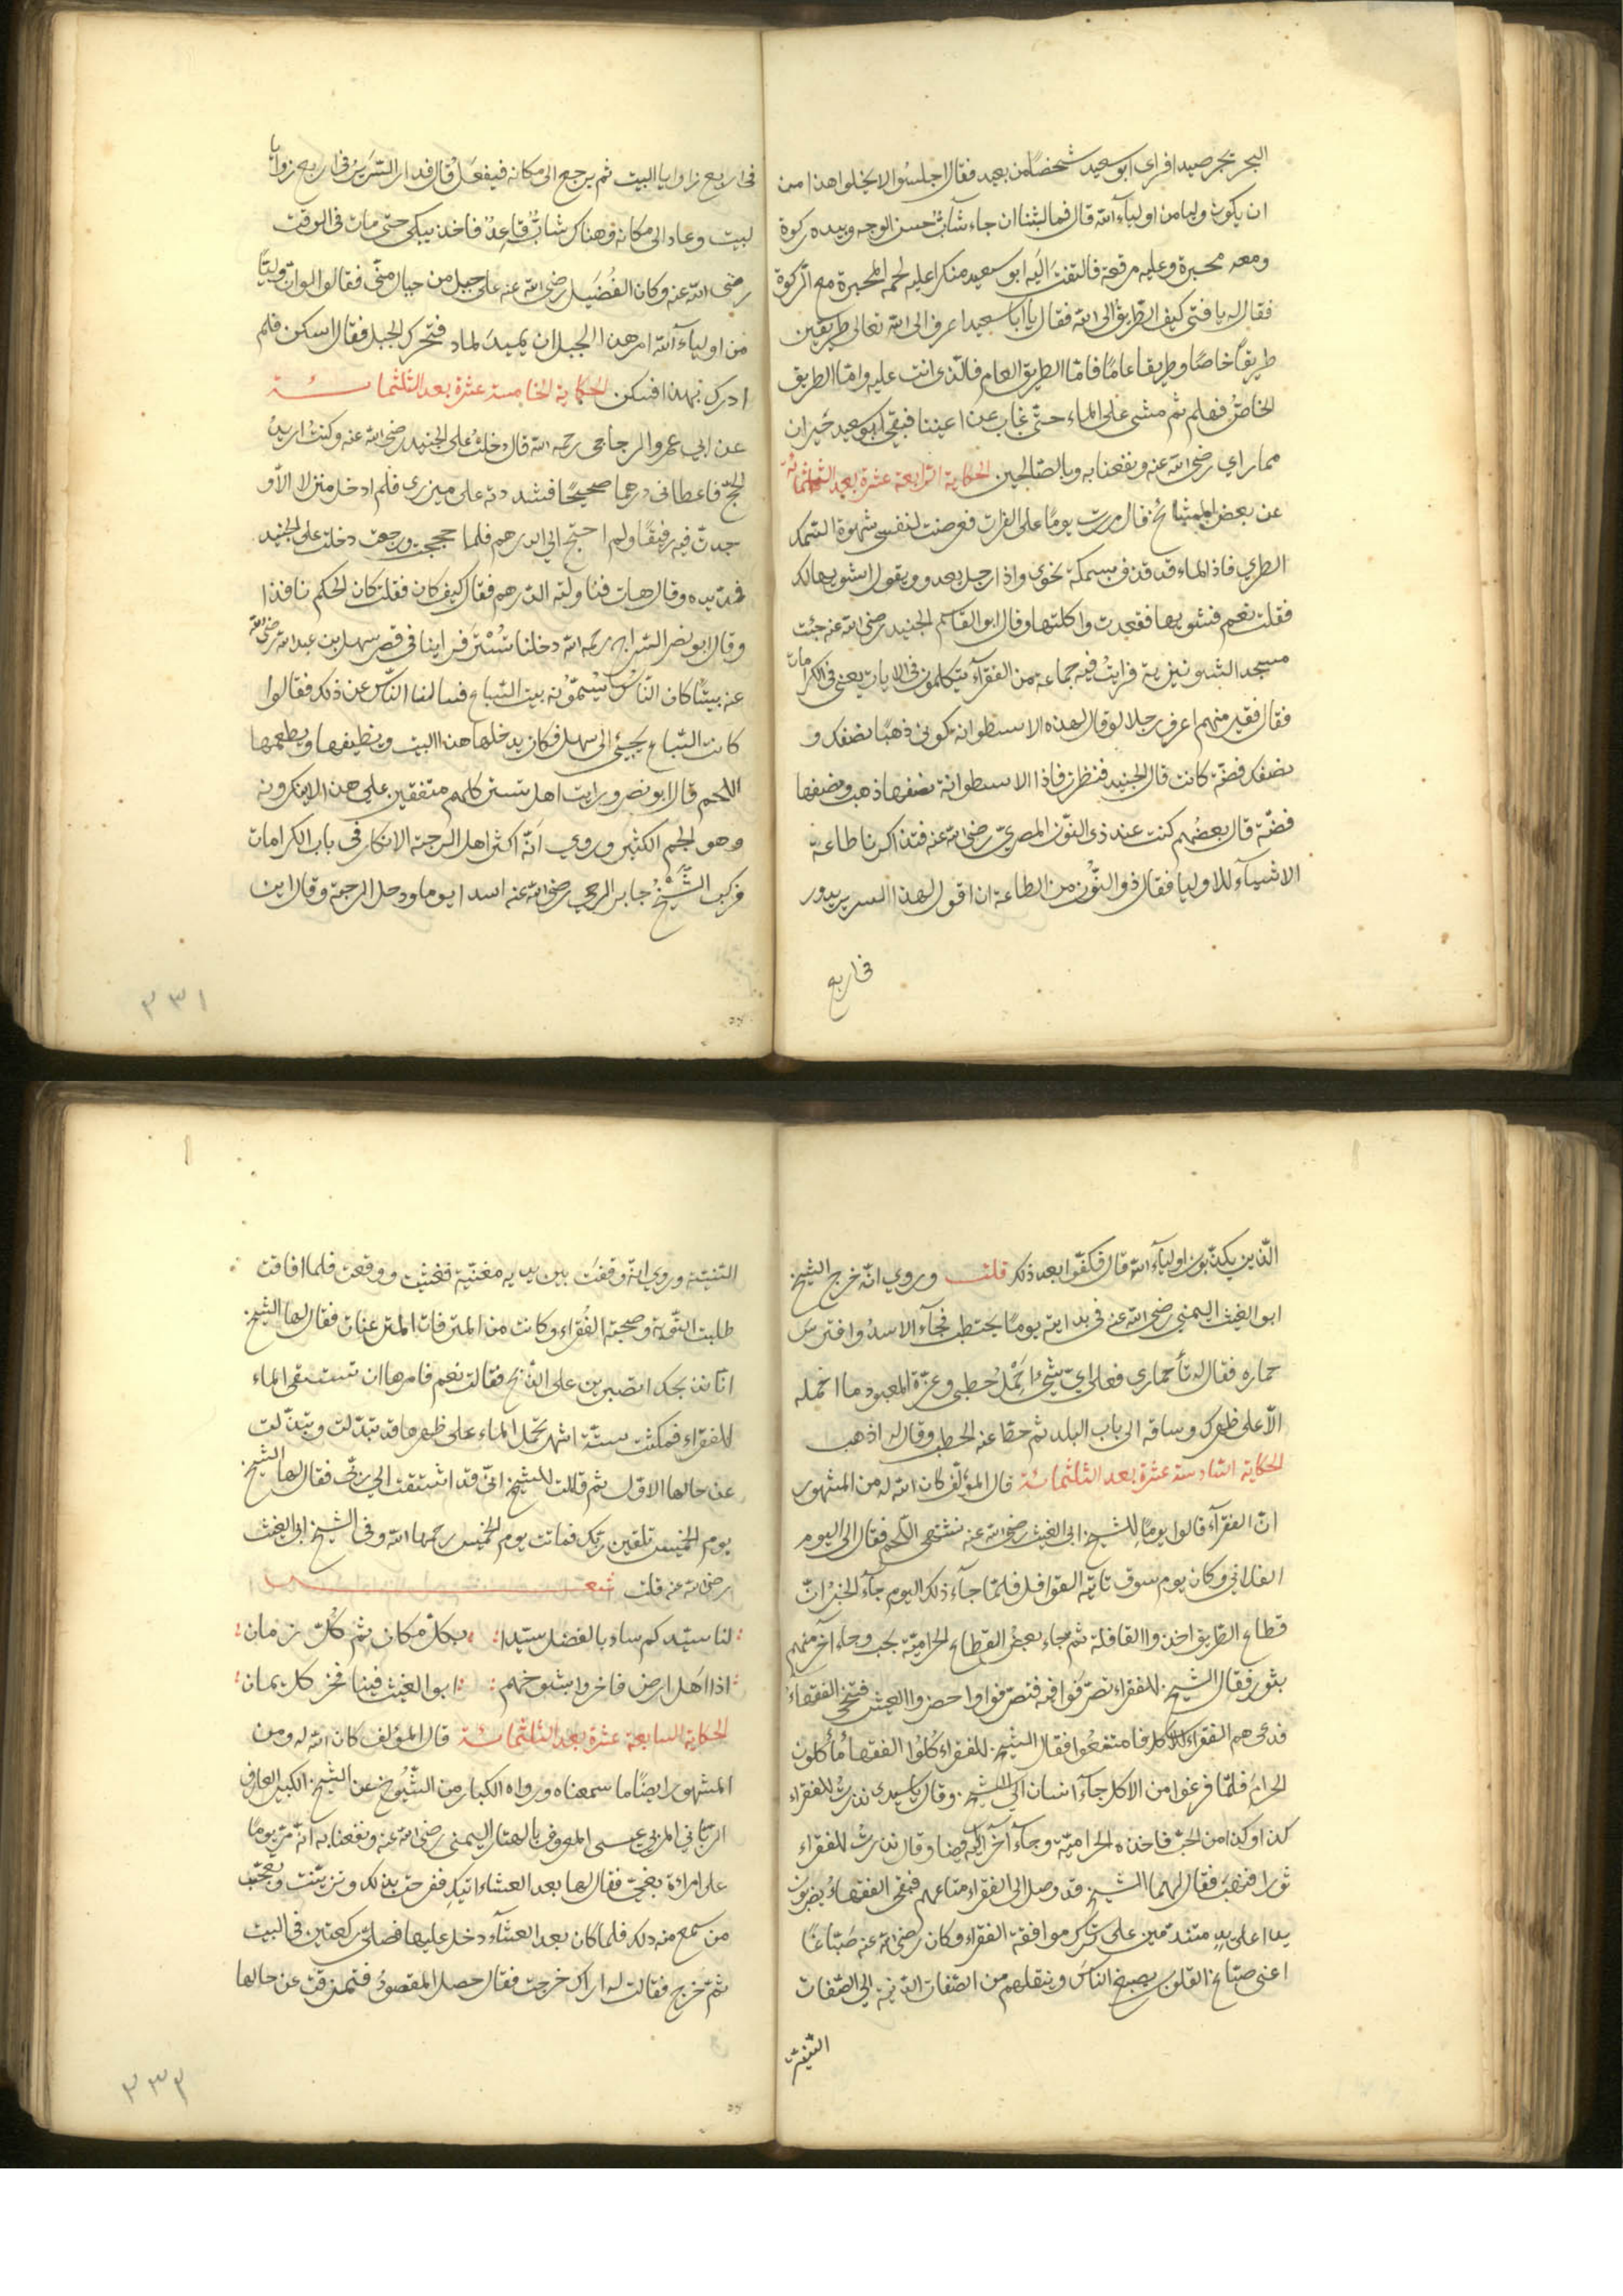 البحر بحر صيدا فراى ابو سعيد شخصًا من بعيد فقال اجلسوا لا يخلوا هذا من
ان يكون وليا من اولياء الله قال فما لبثنا ان جاء شاب حسن الوجه وبيده ركوة
ومعه محبرة وعليه مرقعة فالتفت اليه ابو سعيد منكرا عليه لحمه المحبرة مع الركوة
فقال له يا فتى كيف الطريق الى الله فقال يا ابا سعيد اعرف الى الله تعالى طريقين
طريقًا خاصًا وطريقا عامًا فامّا الطريق العام فالذى انت عليه وامّا الطريق
الخاصّ فهلم ثم مشى على الماء حتى غاب عن اعيننا فبقى ابو سعيد حيران
مما راي رضى الله عنه ونفعنا به وبالصّالحين الحكاية الرابعة عشرة بعد الثلثمائة
عن بعض المشايخ قال مررت يومًا على الفرات فعرضت لنفسى شهوة السّمك
الطري فاذ الماء قد قذف بسمكة نحوى واذا رجل يعدو ويقول اشويها لك
فقلت نعم فشويها فقعدت واكلتها وقال ابو القاسم الجنيد رضى الله عنه جئت
مسجد الشونيزية فرايت فيه جماعة من الفقرآء يتكلمون فى الايات يعنى فى الكرامات
فقال فقير منهم اعرف رجلا لو قال لهذه الاسطوانه كونى ذهبًا نصفك و
نصفك فضّة كانت قال الجنيد فنظرت فاذا الاسطوانة نصفها ذهب ونصفها
فضّة قال بعضهم كنت عند ذى النّون المصرىّ رضى الله عنه فتذاكرنا طاعة
الاشيآء للاوليا فقال ذو النّون من الطاعة ان اقول لهذا السرير يدور
فى اربع
فى اربع زاوايا البيت ثم يرجع الى مكانه فيفعل قال فدار السّرير فى اربع زوايا
لبيت وعاد الى مكانه وهناك شابّ قاعد فاخذ يبكى حتى مات فى الوقت
رضى الله عنه وكان الفضيل رضى الله عنه على جبل من جبال منّى فقال لو ان وليًّا
من اوليآء الله امر هذا الجبل ان يميد لماد فتحرك الجبل فقال اسكن فلم
ادرك بهذا فسكن الحكاية الخامسة عشرة بعد الثلثمائة
عن ابي عمرو الزجاجى رحمه الله قال دخلت على الجنيد رضى الله عنه وكنت اريد
الحجّ فاعطانى درهما صحيحًا فشددته على ميزرى فلم ادخل منزلا الا و
جدت فيه رفيقًا ولم احتج الى الدرهم فلما حججت ورجعت دخلت على الجنيد
فمدّ يده وقال هات فناولته الدّرهم فقال كيف كان فقلت كان الحكم نافذا
وقال ابو نصر السّراج رحمه الله دخلنا تستر فراينا فى قصر سهل بن عبد الله رضى الله
عنه بيتًا كان النّاس يسمّونه بيت السّباع فسالنا النّاس عن ذلك فقالوا
كانت السّباع يجيئ الى سهل فكان يدخلها هذا البيت ويظيفها ويطعمها
اللحم قال ابو نصر ورايت اهل تستر كلهم متفقين على هذا لا ينكرونه
وهو الجم الكثير وروي انّه اكثر اهل الرحبة الانكار فى باب الكرامات
فركب الشّيخ جابر الرحبي رضى الله عنه اسدا يوما ودخل الرحبة وقال اين
٣٣١
الّذين يكذّبون اوليآء الله قال فكفّوا بعد ذلك قلت وروي انّه خرج الشيخ
ابو الغيث اليمنى رضى الله عنه فى بدايته يومًا يحتطب فجآء الاسد وافترس
حماره فقال له تأ حمارى فعلى ايّ شئ احمل حطبى وعزّة المعبود ما احمله
الّا على ظهرك وساقه الى باب البلد ثم حطّا عنه الحطب وقال له اذهب
الحكاية السّادسة عشرة بعد الثلثمائة قال المؤلّف كان الله له من المشهور
انّ الفقرآء قالوا يومًا للشيخ ابى الغيث رضى الله عنه نشتهى اللّحم فقال الى اليوم
الفلانى وكان يوم سوق تاتيه القوافل فلمّا جآء ذلك اليوم جآء الخبر انّ
قطاع الطّريق اخذوا القافلة ثم جاء بعض القطاع الحراميّة بحب وجاء آخر منهم
بثور فقال الشيخ للفقراء تصرّفوا فيه فتصرّفوا واحضروا العيش فتنحى الفقهآء
فدعى هم الفقراء للاكل فامتنعوا فقال الشيخ للفقراء كلوا الفقهاء ما يأكلون
الحرام فلمّا فرغوا من الاكل جآء انسان الى الشيخ وقال يا سيدى نذرت للفقراء
كذا وكذا من الحبّ فاخذه الحراميّة وجآء آخر ايضا وقال نذرت للفقراء
ثورا فنهب فقال لهما الشيخ قد وصل الى الفقراء متاعهم فبقى الفقهاء يضربون
يدا على يد متندّمين على ترك موافقة الفقراء وكان رضى الله عنه صبّاغًا
اعنى صبّاغ القلوب يصبغ الناس وينقلهم من الصّفات الدّنيّة الى الصّفات
السّنيّة
السّنيّة وروي انّه وقفت بين يديه مغنّية فغشيت ووقعت فلما افاقت
طلبت التّوبة وصحبة الفقراء وكانت من المترفات فقال لها الشيخ
انّا نذبحك اتصبرين على الذّبح فقالت نعم فامرها ان تستسقى الماء
للفقراء فمكثت ستّة اشهر تحمل الماء على ظهرها قد تبدّلت وتبذّلت
عن حالها الاوّل ثم قالت للشيخ انّى قد اشتقت الى ربّى فقال لها الشيخ
يوم الخميس تلقين ربّك فماتت يوم الخميس رحمها الله وفى الشيخ ابى الغيث
رضى الله عنه قلت شعر
لنا سيّد كم ساد بالفضل سيّدا بكلّ مكان ثم كلّ زمان
اذا اهل ارض فاخروا بشيوخهم ابو الغيث فينا فخر كل يمان
الحكاية السابعة عشرة بعد الثلثمائة قال المؤلف كان الله له ومن
المشهور ايضًا ما سمعناه ورواه الكبار من الشّيوخ عن الشيخ الكبير العارف
الربّاني المربى عيسى المعروف بالهتار اليمنى رضى الله عنه ونفعنا به انّه مرّ يومًا
على امراءة بغىّ فقال لها بعد العشاء اتيك ففرحت بذلك وتزيّنت وتعجّب
من سمع منه ذلك فلما كان بعد العشآء دخل عليها فصلّى ركعتين فى البيت
ثمّ خرج فقالت له اراك خرجت فقال حصل المقصود فتمزقت عن حالها
٣٣٣